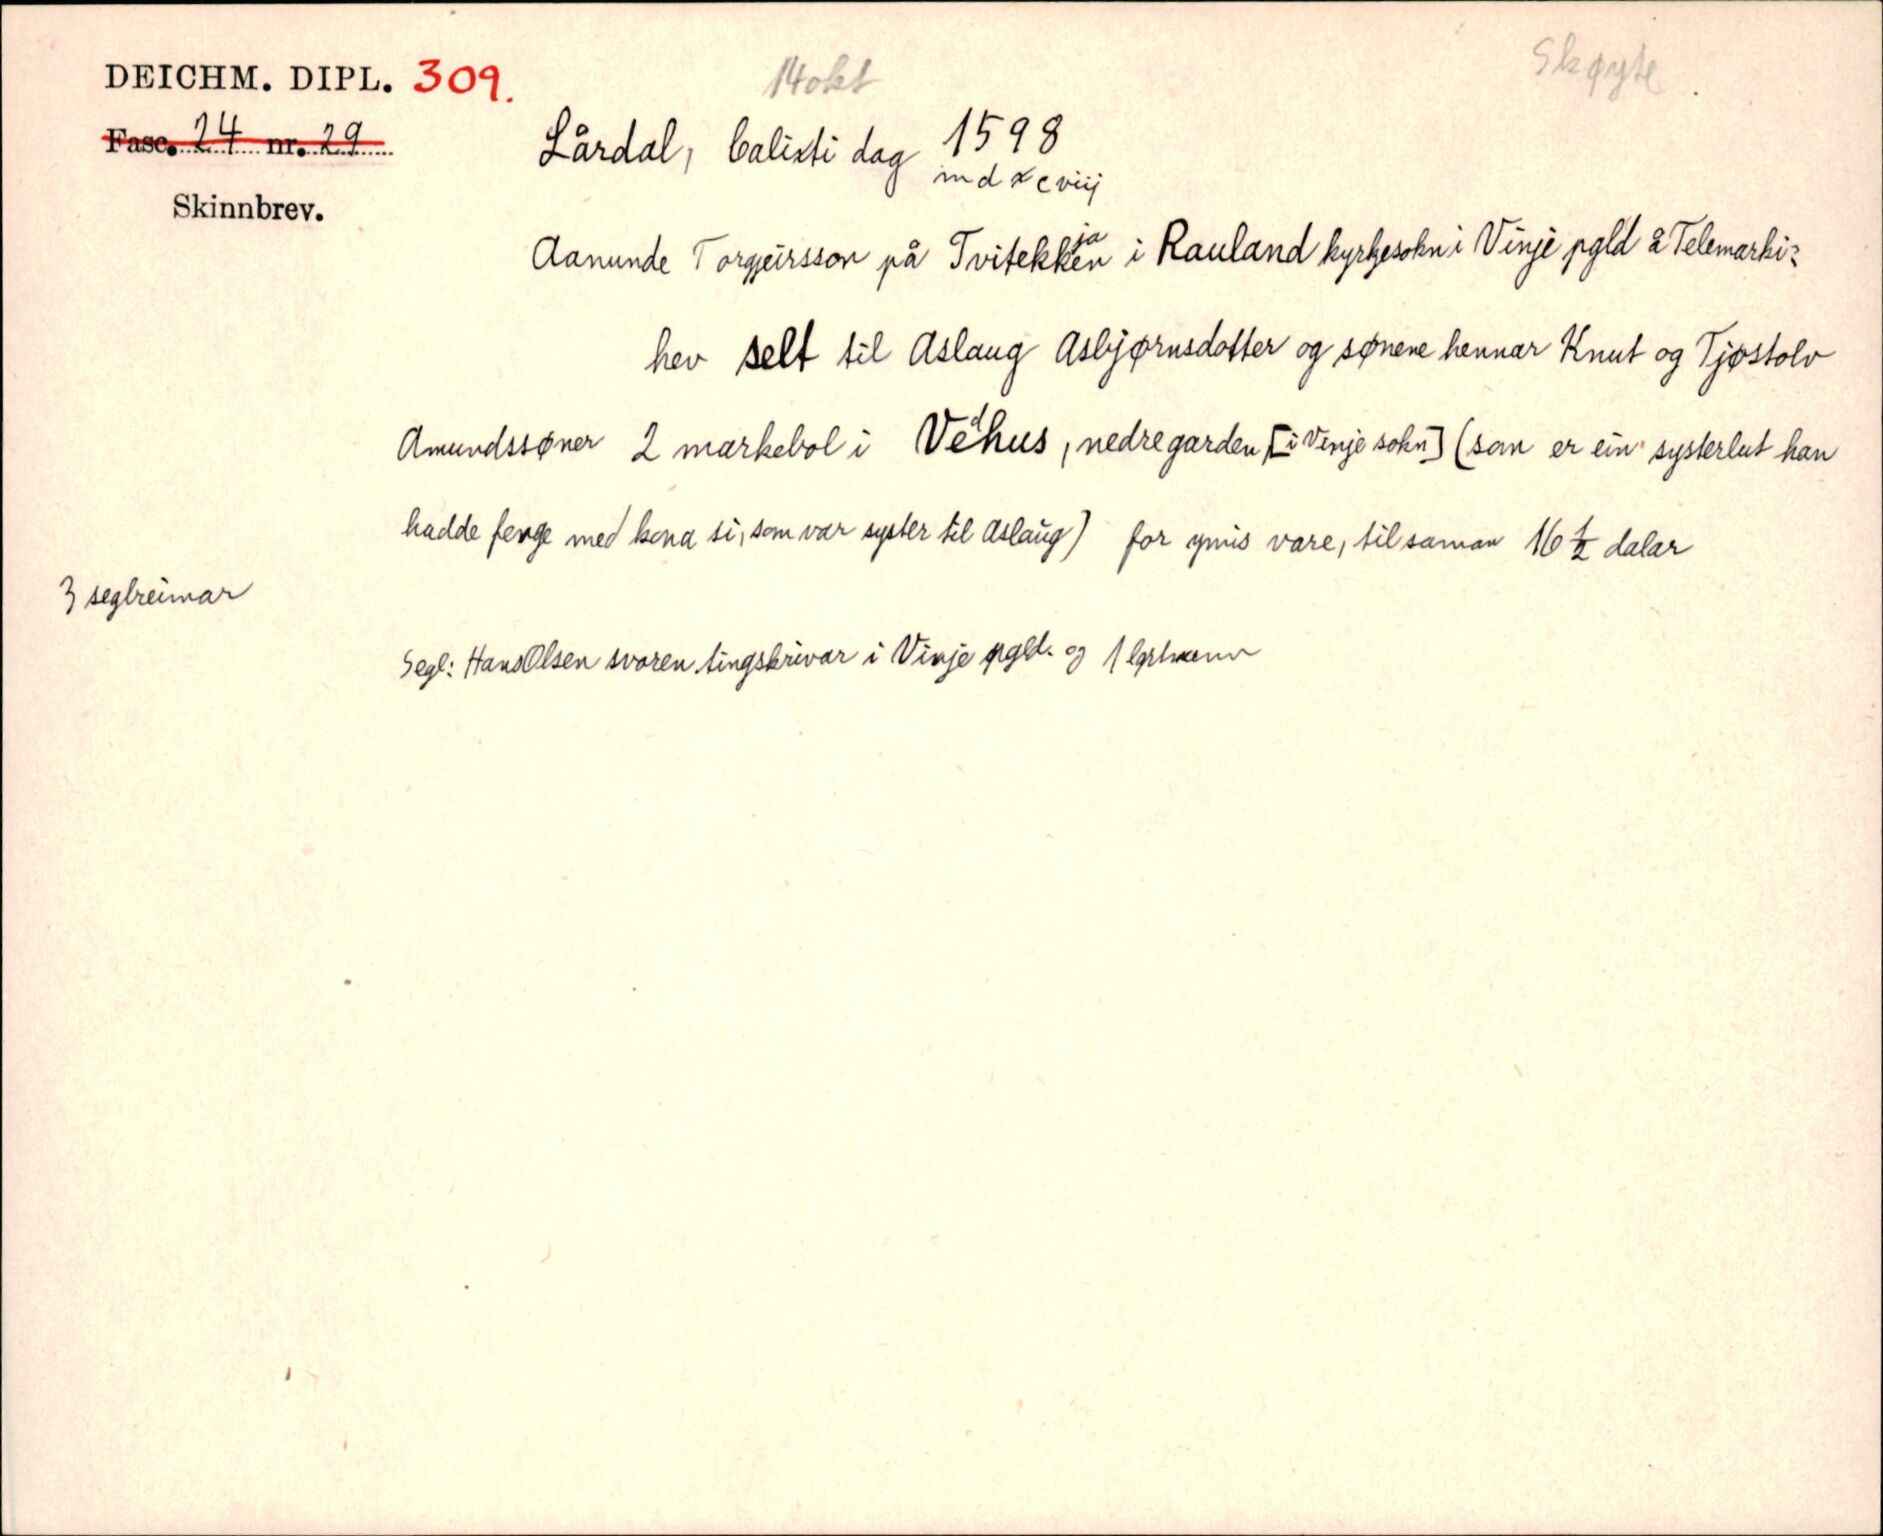 DEICHM. DIPL. 309.
14 okt
Skøyte
Fasc. 24 nr. 29
Lårdal, Calixti dag 1598
mdxcviij
Skinnbrev.
Aanunde Torgjeirsson på Tvitekkjen ja i Rauland kyrkjesokn i Vinje pgld å Telemarki:
hev selt til Aslaug Asbjørnsdotter og sønene hennar Knut og Tjøstolv
Amundssøner 2 markebol i Vedhus, nedregarden [i Vinje sokn] (som er ein systerlut han
hadde fenge med kona si, som var syster til Aslaug) for ymis vare, tilsaman 16 1/2 dalar
3 seglreimar
Segl: Hans Olsen svoren tingskrivar i Vinje pgld. og 1 lgrtmenn